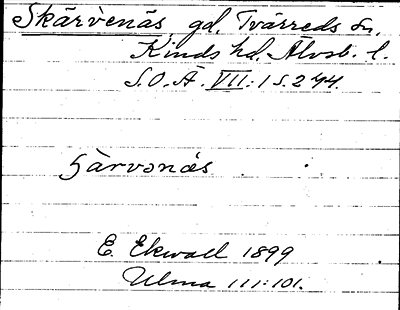 Skärvenäs, gd, Tvärreds sn,
Kinds hd. Älvsb. l.
S.O.Ä. VII:1 s. 244.
ʃàrvənä́s
E. Ekwall 1899
Ulma 111:101.